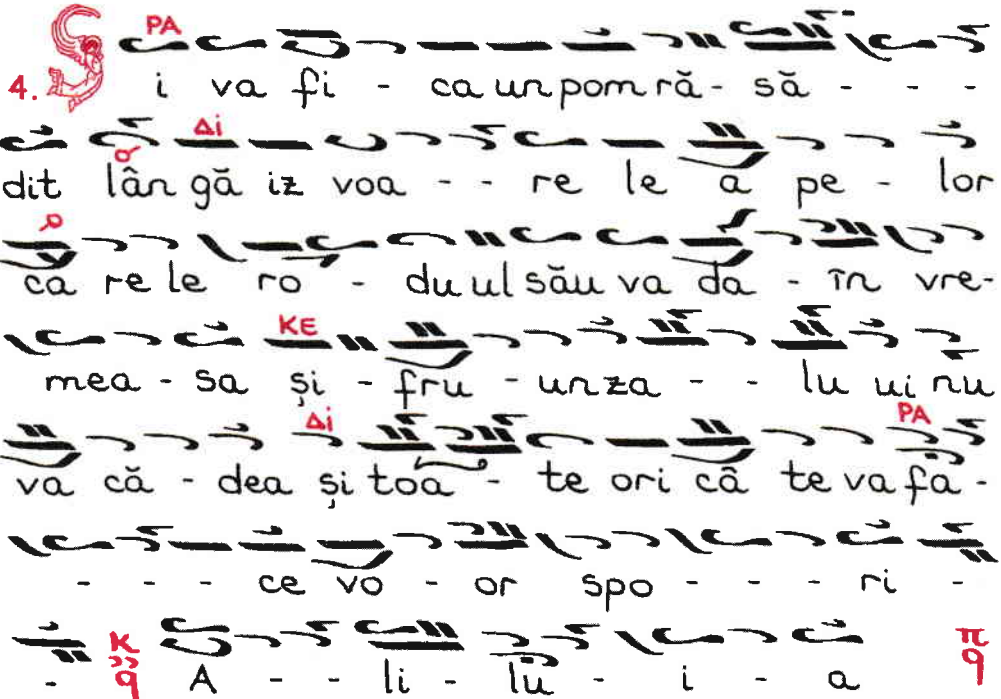 PA
4. Și va fi - ca un pom ră - să - - -
Δi
dit lân gă iz voa - - re le a pe - lor
ca re le ro - du ul său va da - în vre-
KE
mea - sa și - fru - un za - - lu ui nu
Δi PA
va că - dea și toa - te ori câ te va fa -
- - - ce vo - or spo - - - ri -
- K q A - - li - lu - i - a π q